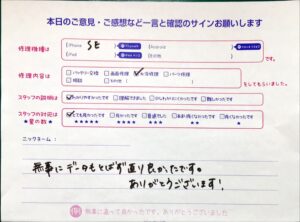 本日のご意見・ご感想など一言と確認のサインお願いします
修理機種は
iPhone SE
Android
iPad
その他
です。
修理内容は
バッテリー交換
画面修理
水没修理
パーツ修理
相談
その他
をしてもらいました。
スタッフの説明は
わかりやすかったです
理解できました
少しわかりにくかったです
難しかったです
スタッフの対応は
★星の数★
とても良かったです
良かったです
普通でした
★★★★★
★★★★
★★★
★★
★
ニックネーム：
無事にデータもとばず直り良かったです。
ありがとうございます！
無事に直って良かったです。ありがとうございました